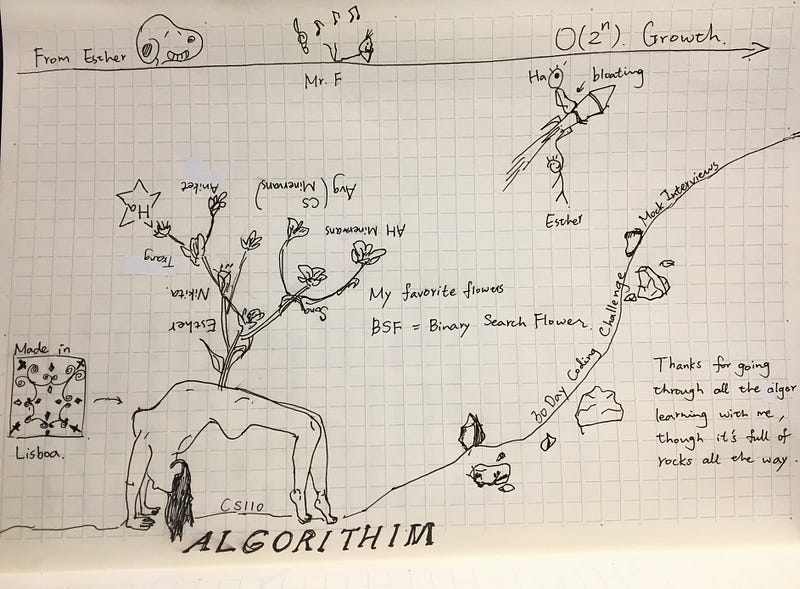 From Esther
Mr. F
O(2ⁿ). Growth.
Ha
bloating
Esther
Aniket
Ha
Avg (CS Minervans)
AH Minervans
Trang
Nikita.
Esther
Song
My favorite flowers
BSF = Binary Search Flower.
Mock Interviews
30 Day Coding Challenge
Made in
Lisboa.
Thanks for going
through all the algor
learning with me,
though it's full of
rocks all the way.
CS110
ALGORITHIM